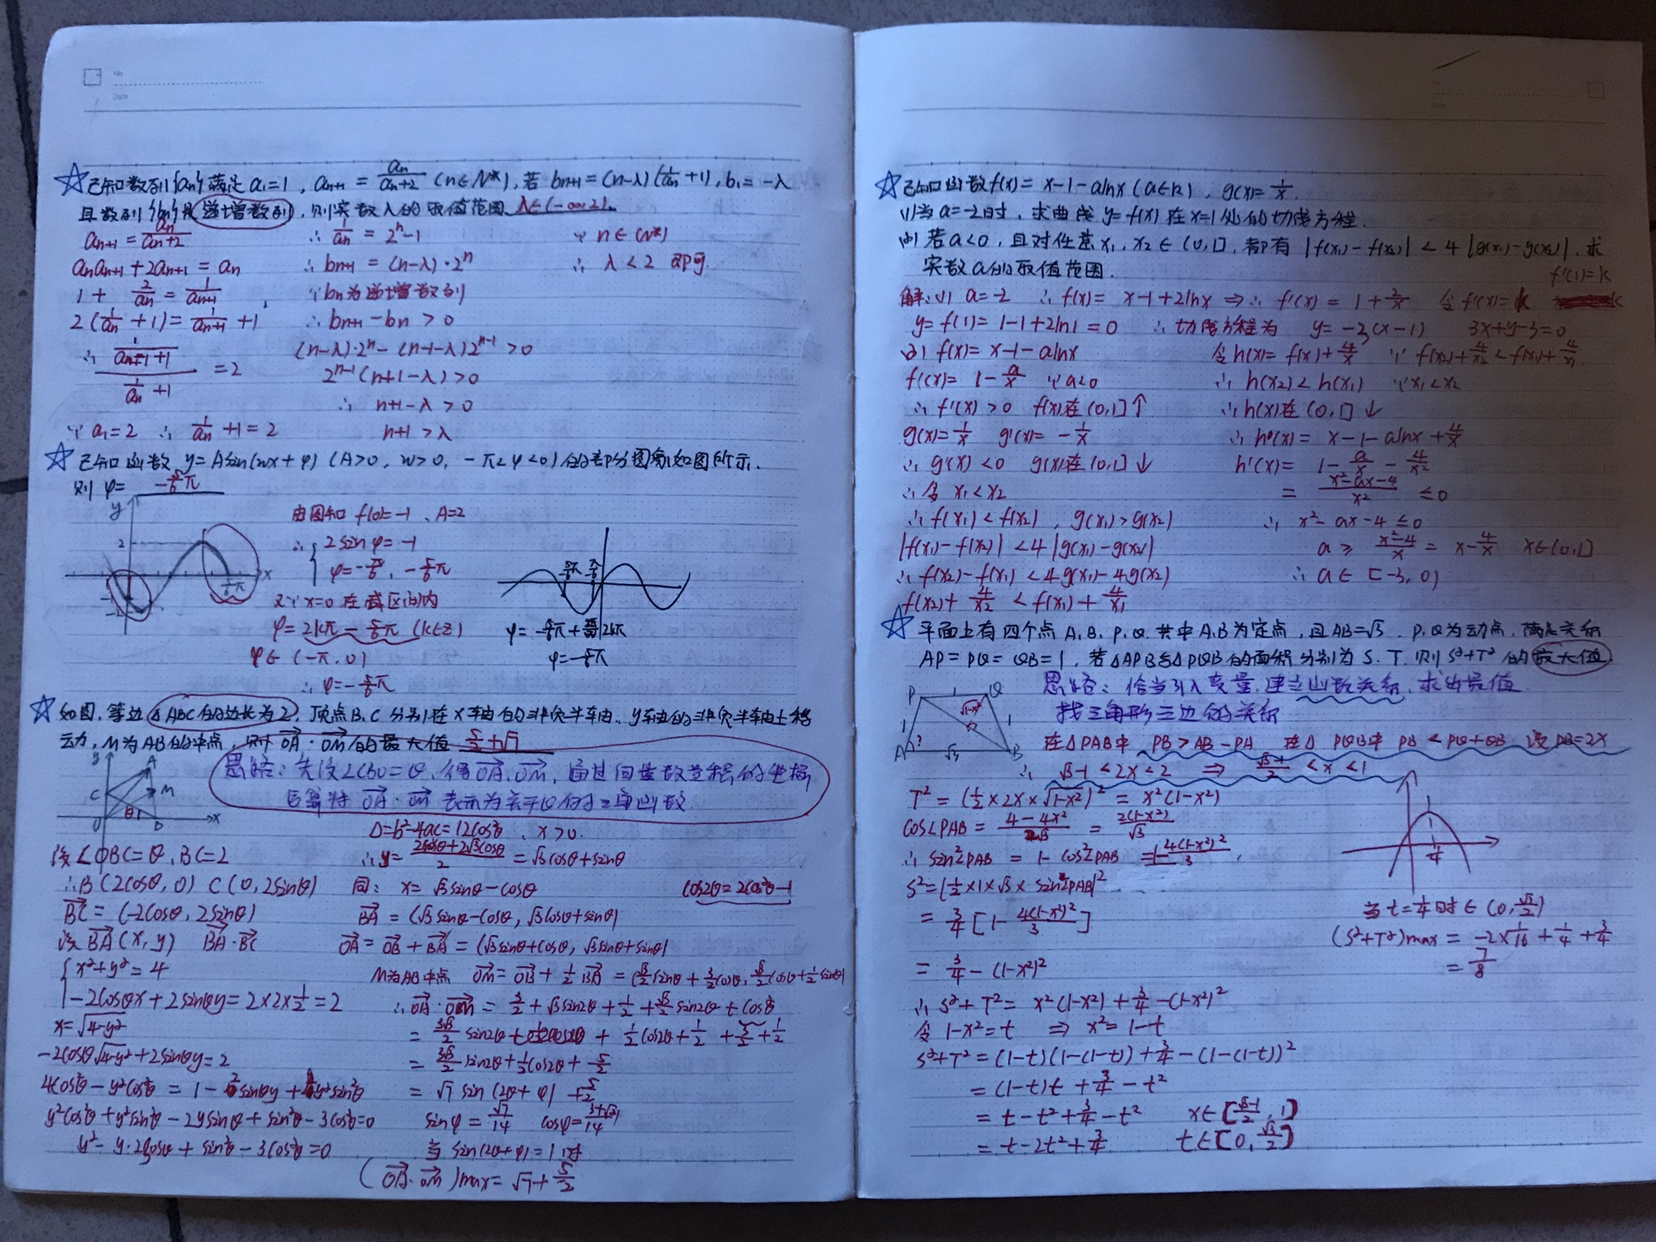 No.
Date
☆已知数列{an}满足a₁=1, an+1 = an/(an+2) (n∈N*), 若 bn+1=(n-λ)(1/an+1), b₁=-λ
且数列{bn}是递增数列, 则实数λ的取值范围 λ∈(-∞,2).
an+1 = an/(an+2)
an an+1 + 2an+1 = an
1 + 2/an = 1/an+1
2(1/an+1) = 1/an+1 +1
∴ (1/an+1 +1)/(1/an +1) = 2
∵ a₁=2 ∴ 1/an +1 = 2
∴ 1/an = 2ⁿ-1
∴ bn+1 = (n-λ)·2ⁿ
∵bn为递增数列
∴ bn+1 - bn > 0
(n-λ)·2ⁿ - (n-1-λ)2ⁿ⁻¹ >0
2ⁿ⁻¹(n+1-λ)>0
∴ n+1-λ > 0
n+1 > λ
∵ n∈(N*)
∴ λ < 2 即可.
☆已知函数 y=Asin(wx+φ) (A>0, w>0, -π<φ<0) 的部分图象如图所示.
则 φ= -5/6π
y
2
x
由图知 f(0)=-1, A=2
∴ { 2sinφ=-1
φ=-π/6, -5/6π
又∵x=0 在减区间内
φ=2kπ-5/6π (k∈Z)
φ∈(-π,0)
∴φ=-5/6π
φ=-5/6π+2kπ
φ=-5/6π
☆如图, 等边△ABC的边长为2, 顶点B.C 分别在x轴的非负半轴, y轴的非负半轴上移
动, M为AB的中点, 则 OA·OM的最大值 5/2+√7
思路: 先设∠CBO=θ, 得OA, OM, 通过向量数量积的坐标
运算将 OA·OM 表示为关于θ的三角函数.
y
A
C
M
O
θ
B
x
设∠OBC=θ, BC=2
∴B(2cosθ,0) C(0,2sinθ)
BC=(-2cosθ, 2sinθ)
设BA(x,y) BA·BC
{ x²+y²=4
-2cosθx+2sinθy=2×2×1/2=2
x=√(4-y²)
-2cosθ√(4-y²)+2sinθy=2
4cos²θ-y²cos²θ = 1-2sinθy+y²sin²θ
y²cos²θ+y²sin²θ-2ysinθ+sin²θ-3cos²θ=0
Δ=b²-4ac=12cos²θ, x>0.
同: x=√3sinθ-cosθ
cos2θ=2cos²θ-1
BA=(√3sinθ-cosθ, √3cosθ+sinθ)
OA=OB+BA=(√3sinθ+cosθ, √3sinθ+sinθ)
M为AB中点 OM=OB+1/2BA=(√3/2sinθ+3/2cosθ, √3/2cosθ+1/2sinθ)
= 3√3/2 sin2θ+1/2cos2θ+5/2
= √7 sin(2θ+φ)+5/2
当 sin(2θ+φ)=1时
(OA·OM)max=√7+5/2
☆已知函数f(x)=x-1-alnx (a∈R), g(x)=1/x.
(1)当a=-2时, 求曲线y=f(x)在x=1处的切线方程.
(2)若a<0, 且对任意x₁, x₂∈(0,1], 都有|f(x₁)-f(x₂)|<4|g(x₁)-g(x₂)|, 求
实数a的取值范围.
f'(1)=k
解:(1) a=-2 ∴f(x)=x-1+2lnx ⇒∴f'(x)=1+2/x 令f'(x)=k
y=f(1)=1-1+2ln1=0 ∴切线方程为 y=-3(x-1) 3x+y-3=0
(2) f(x)=x-1-alnx
f'(x)=1-a/x ∵a<0
∴f'(x)>0 f(x)在(0,1]↑
g(x)=1/x g'(x)=-1/x
∴g'(x)<0 g(x)在(0,1]↓
∴令 x₁<x₂
∴f(x₁)<f(x₂), g(x₁)>g(x₂)
|f(x₁)-f(x₂)|<4|g(x₁)-g(x₂)|
∴f(x₂)-f(x₁)<4g(x₁)-4g(x₂)
f(x₂)+4/x₂<f(x₁)+4/x₁
令h(x)=f(x)+4/x ∵f(x₂)+4/x₂<f(x₁)+4/x₁
∴h(x₂)<h(x₁) ∵x₁<x₂
∴h(x)在(0,1]↓
∴h(x)=x-1-alnx+4/x
h'(x)=1-a/x-4/x²
=(x²-ax-4)/x² ≤0
∴x²-ax-4≤0
a≥(x²-4)/x=x-4/x x∈(0,1]
∴a∈[-3,0)
☆平面上有四个点A.B.P.Q, 其中A.B为定点, 且AB=√3, P.Q为动点, 满足关系
AP=PQ=QB=1, 若△APB与△PQB的面积分别为S.T, 则S²+T²的最大值
思路: 恰当引入变量, 建立函数关系, 求出最值.
找三角形三边的关系
P
1
Q
√(1-x²)
1
1
A
?
√3
B
在△PAB中 PB>AB-PA 在△PQB中 PB<PQ+QB 设PB=2x
∴√3-1<2x<2 ⇒ (√3-1)/2<x<1
T²=(1/2×2x×√(1-x²))²=x²(1-x²)
cos∠PAB=(4-4x²)/2√3=2(1-x²)/√3
∴sin²∠PAB=1-cos²∠PAB=1-4(1-x²)²/3
S²=(1/2×1×√3×sin∠PAB)²
=3/4[1-4(1-x²)²/3]
=3/4-(1-x²)²
∴S²+T²=x²(1-x²)+3/4-(1-x²)²
令1-x²=t ⇒ x²=1-t
S²+T²=(1-t)(1-(1-t))+3/4-(1-(1-t))²
=(1-t)t+3/4-t²
=t-t²+3/4-t² x∈[(√3-1)/2,1]
=t-2t²+3/4 t∈[0,√3/2]
1/4
当t=1/4时∈(0,√3/2)
(S²+T²)max=-2×1/16+1/4+3/4
=7/8